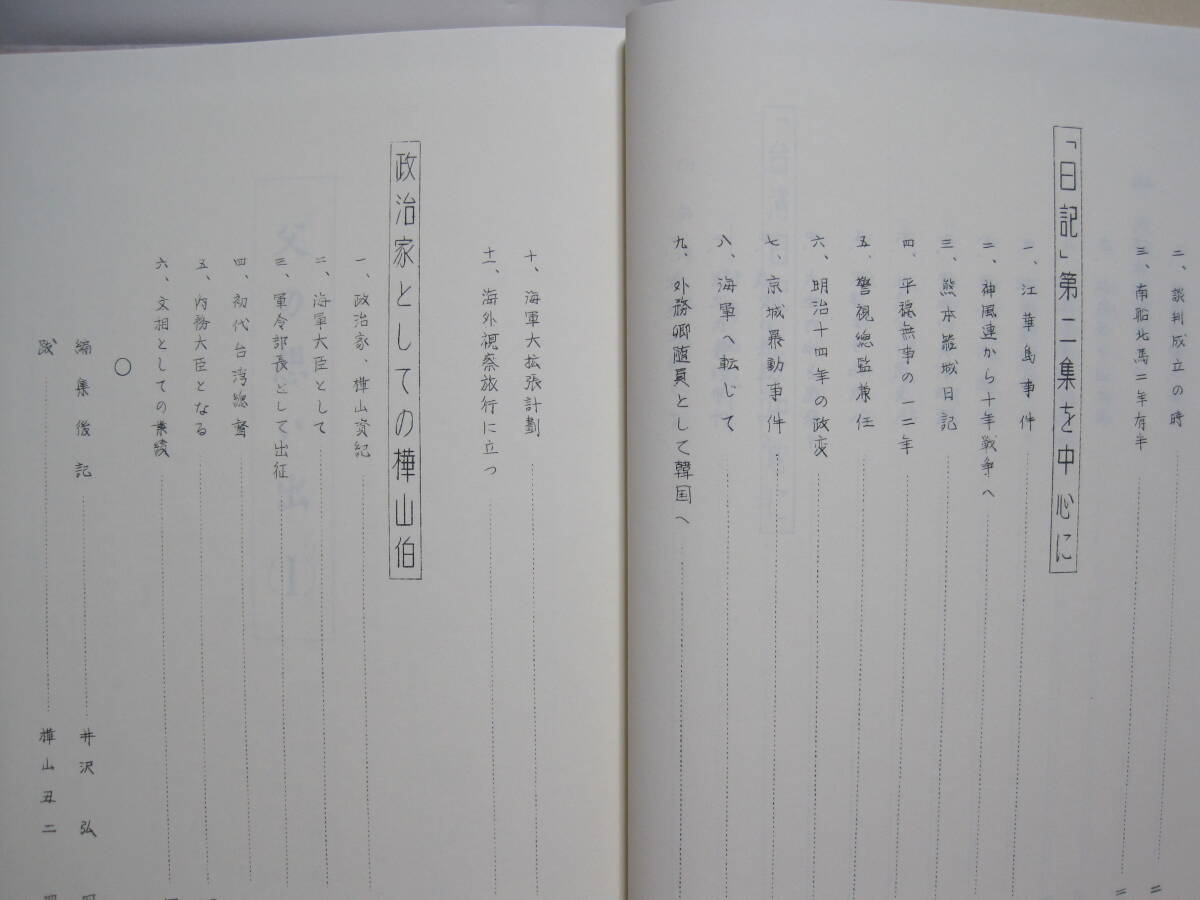 二、談判成立の時
三、南船北馬二年有半
「日記」第二集を中心に
一、江華島事件
二、神風連から十年戦争へ
三、熊本籠城日記
四、平穏無事の一二年
五、警視總監兼任
六、明治十四年の政変
七、京城暴動事件
八、海軍へ転じて
九、外務卿随員として韓国へ
十、海軍大拡張計劃
十一、海外視察旅行に立つ
政治家としての樺山伯
一、政治家、樺山資紀
二、海軍大臣として
三、軍令部長として出征
四、初代台湾總督
五、内務大臣となる
六、文相としての業績
〇
編集後記 井沢弘
跋 樺山丑二